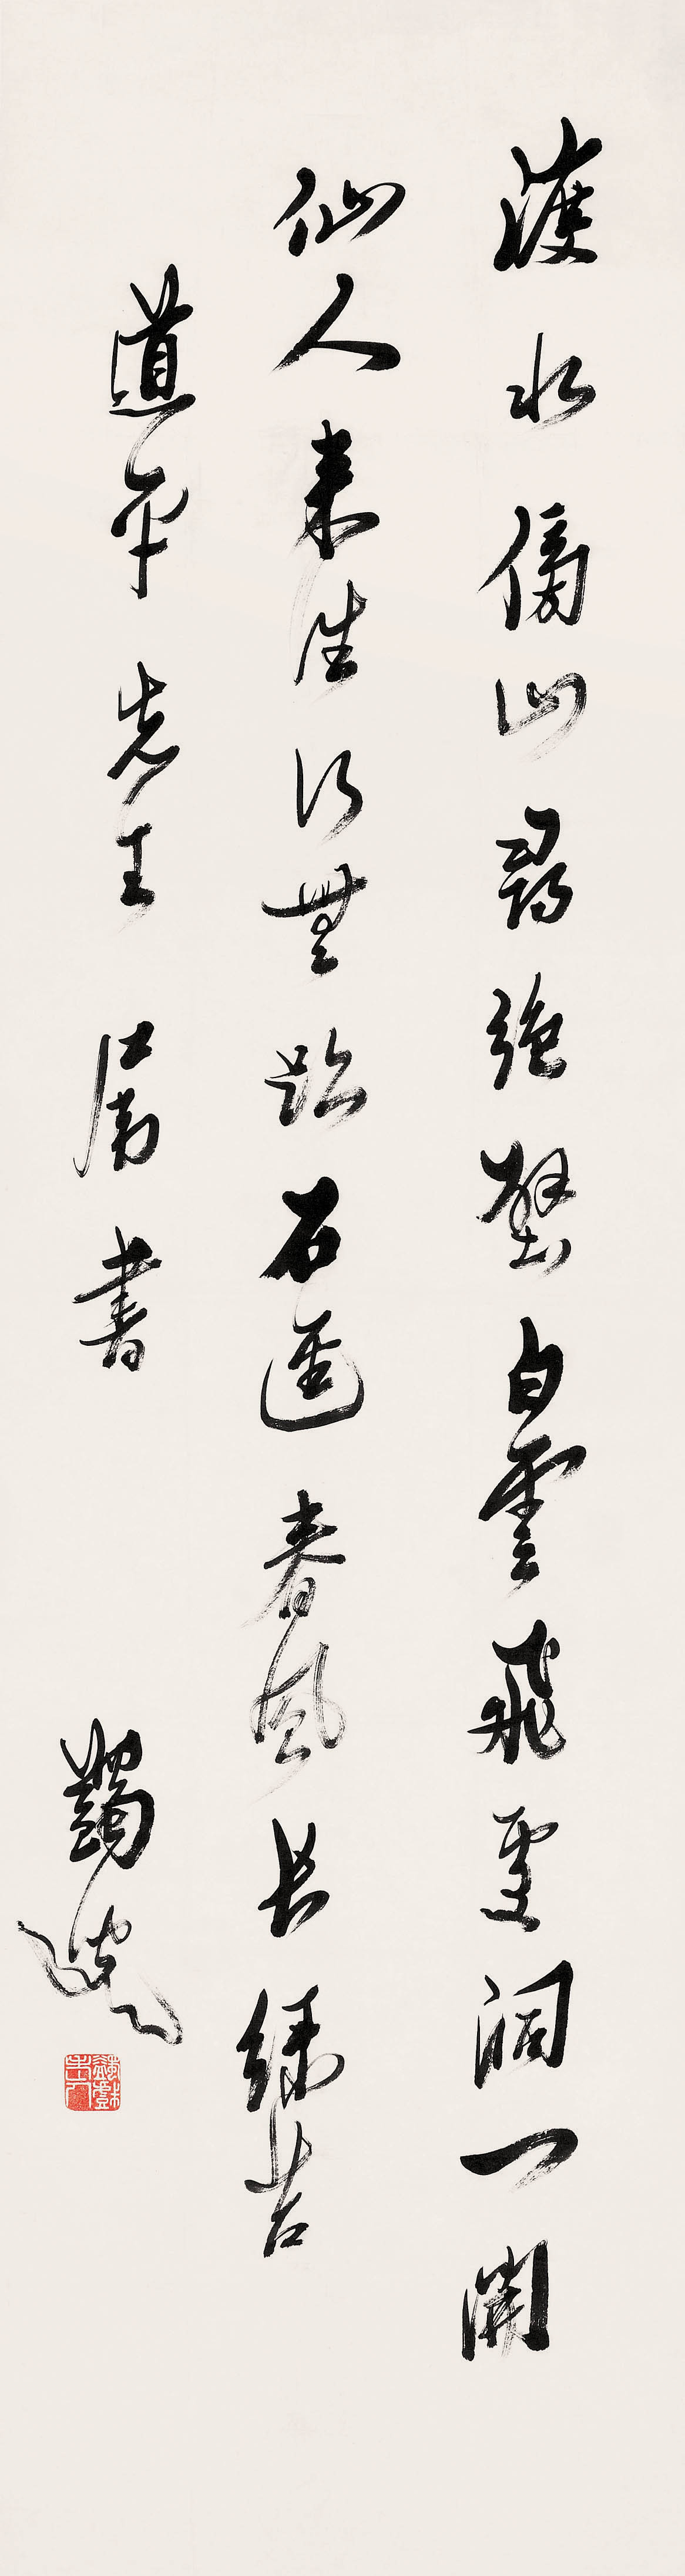 渡水傍山尋絕壁白雲飛處洞一開
仙人来往行無跡石逕春風長綠苔
道平先生屬書
蠲叟